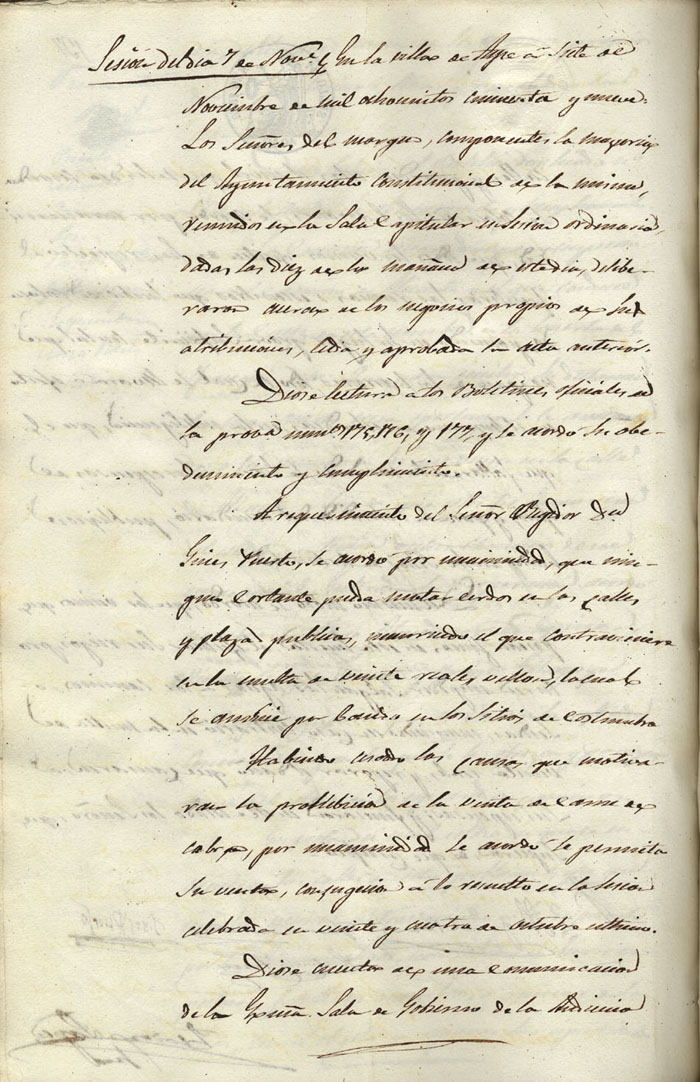 Sesion del dia 7 de Nove. En la villa de Aspe á siete de
Noviembre de mil ochocientos cincuenta y nueve.
Los Señores del margen, componentes la mayoria
del Ayuntamiento Constitucional de la misma,
reunidos en la Sala Capitular en sesion ordinaria
dadas las diez de la mañana de este dia, delibe-
raron acerca de los negocios propios de sus
atribuciones, leida y aprobada la acta anterior.
Diose lectura a los Boletines oficiales de
la prova. numos. 175, 176, y 177, y se acordó su obe-
decimiento y cumplimiento.
A requerimiento del Señor Regidor Dn.
Gines Puerto, se acordó por unanimidad, que nin-
gun cortante pueda matar cerdos en las calles
y plazas publicas, incurriendo el que contraviniere
en la multa de veinte reales vellon, la cual
se anuncie por bando en los Sitios de costumbre
Habiendo cesado las causas que motiva-
ron la prohibicion de la venta de carne de
cabra, por unanimidad se acordó se permita
su venta, con sugecion á lo resuelto en la sesion
celebrada en veinte y cuatro de octubre ultimo.
Diose cuenta de una comunicacion
de la Exma. Sala de Gobierno de la Audiencia